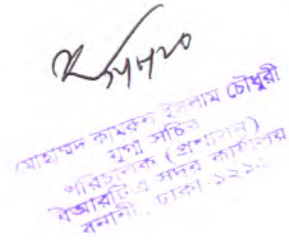 মোহাম্মদ কামরুল ইসলাম চৌধুরী
যুগ্ম সচিব
পরিচালক (প্রশাসন)
বিআরটিএ সদর কার্যালয়
বনানী, ঢাকা-১২১২